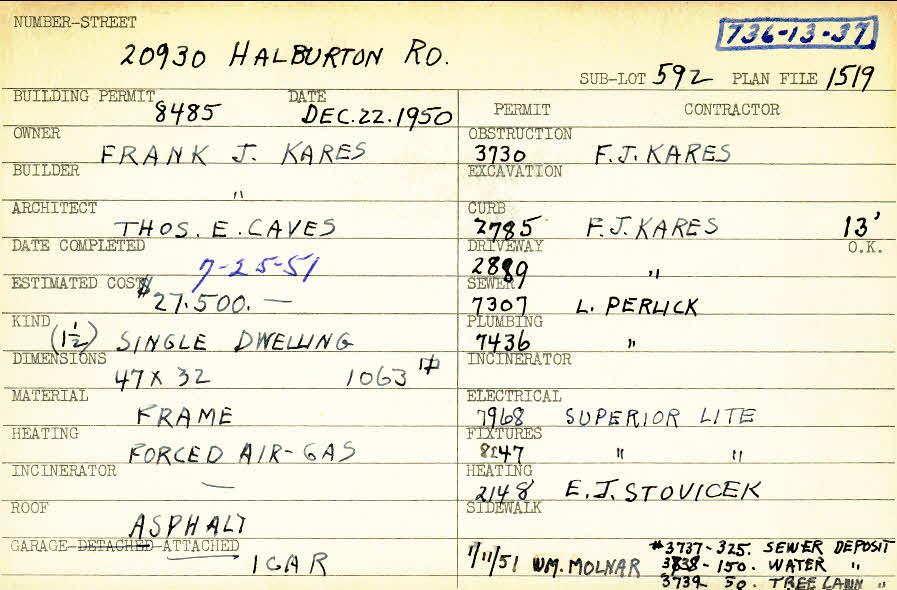 NUMBER-STREET
736-13-37
20930 HALBURTON RD.
SUB-LOT 592 PLAN FILE 1519
BUILDING PERMIT DATE
8485 DEC.22.1950
PERMIT CONTRACTOR
OWNER
FRANK J. KARES
OBSTRUCTION
3730 F.J. KARES
BUILDER
"
EXCAVATION
ARCHITECT
THOS. E. CAVES
CURB
2785 F.J. KARES 13'
DATE COMPLETED
7-25-51
DRIVEWAY O.K.
2889 "
ESTIMATED COST
$27.500.—
SEWER
7307 L. PERLICK
KIND
(1½) SINGLE DWELLING
PLUMBING
7436 "
DIMENSIONS
47 X 32 1063
INCINERATOR
MATERIAL
FRAME
ELECTRICAL
7968 SUPERIOR LITE
HEATING
FORCED AIR-GAS
FIXTURES
8247 " "
INCINERATOR
—
HEATING
2148 E.J. STOVICEK
ROOF
ASPHALT
SIDEWALK
GARAGE-DETACHED-ATTACHED
1 CAR
1/11/51 WM. MOLNAR #3737-325. SEWER DEPOSIT
3738-150. WATER "
3739 50. TREE LAWN "